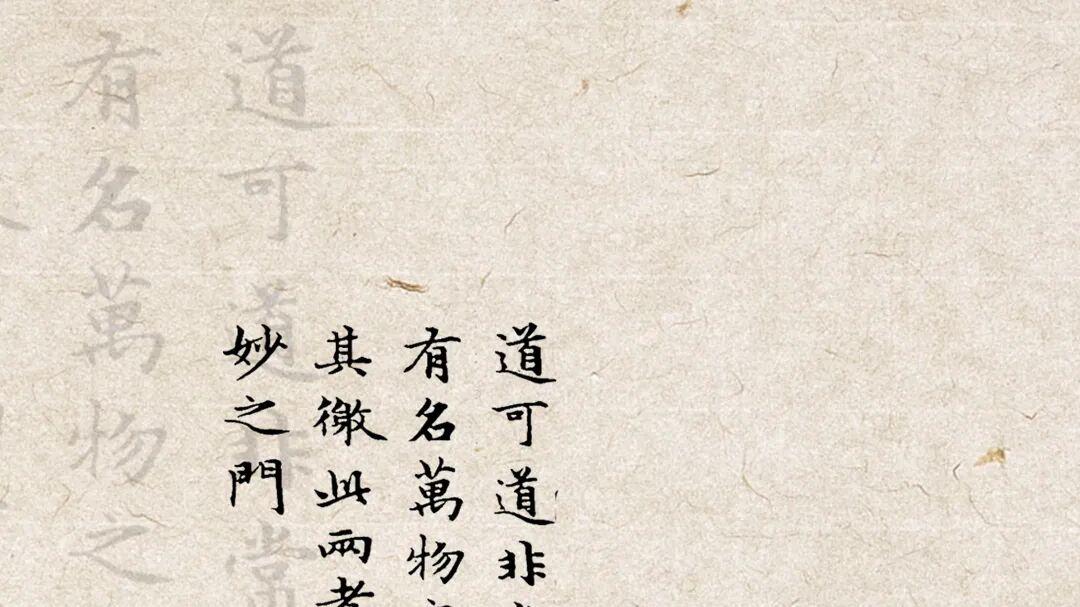 道可道非
有名萬物
其徼此兩者
妙之門
道可道非常
有名萬物之